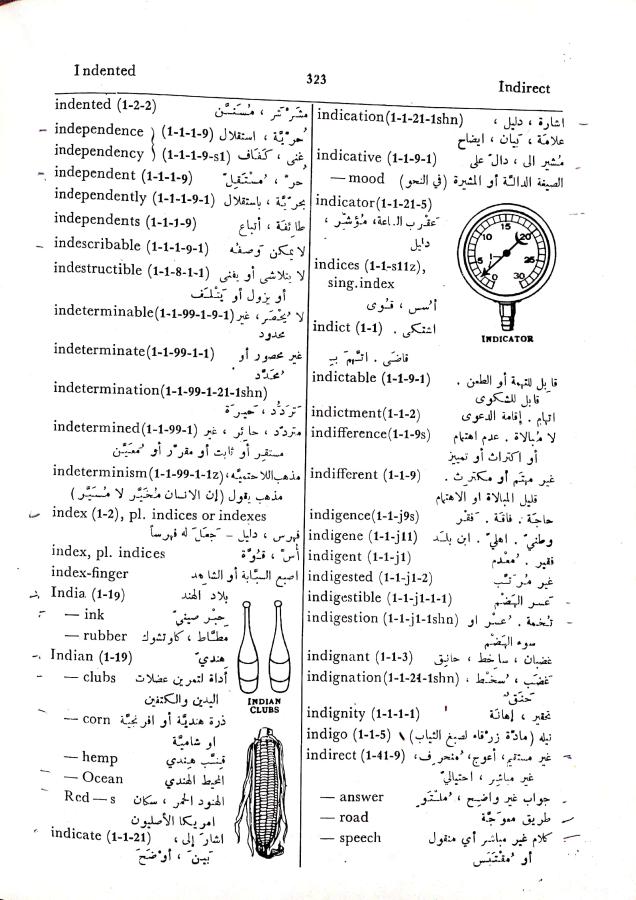 Indented
323
Indirect
indented (1-2-2) مشَرْشَر ، مُسَنَّن
independence (1-1-1-9) حُرِّيَّة ، استقلال
independency (1-1-1-9-s1) غنى ، كَفَاف
independent (1-1-1-9) حُرّ ، مُسْتَقِلّ
independently (1-1-1-9-1) بحرِّيَّة ، باستقلال
independents (1-1-1-9) طائفَة ، أتباع
indescribable (1-1-1-9-1) لا يمكن وَصفُه
indestructible (1-1-8-1-1) لا يتلاشى أو يفنى
أو يزول أو يَتْلَف
indeterminable(1-1-99-1-9-1) لا يُحْصَر، غير
محدود
indeterminate(1-1-99-1-1) غير محصور أو
مُحَدَّد
indetermination(1-1-99-1-21-1shn)
تَرَدُّد ، حَيرَة
indetermined(1-1-99-1) متردّد ، حائر ، غير
مستقر أو ثابت أو مقرّر أو مُعَيَّن
indeterminism(1-1-99-1-1z) مذهب اللاحتميَّة،
مذهب يقول (إن الانسان مُخَيَّر لا مُسَيَّر)
index (1-2), pl. indices or indexes
فهرس ، دليل – جَعَلَ له فهرساً
index, pl. indices أُسّ ، قُوَّة
index-finger اصبع السبَّابة أو الشاهد
India (1-19) بلاد الهند
— ink حِبْر صينيّ
— rubber مطَّاط ، كاوتشوك
Indian (1-19) هنديّ
— clubs أداة لتمرين عضلات
اليدين والكتفين
INDIAN
CLUBS
— corn ذرة هنديَّة أو افرنجيَّة
او شاميَّة
— hemp قِنَّب هندي
— Ocean المحيط الهندي
Red — s الهنود الحمر ، سكان
امريكا الأصليون
indicate (1-1-21) اشار إلى ،
بَيَّن ، أوْضَحَ
indication(1-1-21-1shn) اشارة ، دليل ،
علامَة ، كيان ، ايضاح
indicative (1-1-9-1) مُشير الى ، دالّ على
— mood الصيغة الدالَّة أو المشيرة (في النحو)
indicator(1-1-21-5)
عَقرب الساعة، مُؤشِّر ،
دليل
15
10
20
5
25
0
30
INDICATOR
indices (1-1-s11z),
sing.index
أُسس ، قُوى
indict (1-1) اشتكى .
قاضى . اتَّهَمَ بِـ
indictable (1-1-9-1) قابل للتهمة أو الطعن .
قابل للشكوى
indictment (1-1-2) اتهام . إقامة الدعوى
indifference(1-1-9s) لا مُبالاة . عدم اهتمام
أو اكتراث أو تمييز
indifferent (1-1-9) غير مهتم أو مكترث .
قليل المبالاة او الاهتمام
indigence(1-1-j9s) حاجَة . فاقَة . فَقر
indigene (1-1-j11) وطنيّ . اهليّ . ابن بلَد
indigent (1-1-j1) فقير . مُعْدم
indigested (1-1-j1-2) غير مُرَتَّب
indigestible (1-1-j1-1-1) عَسر الهَضْم
indigestion (1-1-j1-1shn) تُخمة . عُسْر او
سوء الهَضْم
indignant (1-1-3) غضبان ، ساخط ، حانِق
indignation(1-1-21-1shn) غَضَب ، سُخْط ،
حَنَق
indignity (1-1-1-1) تحقير ، إهانَة
indigo (1-1-5) نيله (مادَّة زرقاء لصبغ الثياب)
indirect (1-41-9) غير مستقيم، أعوج، مُنحرف،
غير مباشر ، احتياليّ
— answer جواب غير واضح ، مُلْتَوٍ
— road طريق معوَجَّة
— speech كلام غير مباشر أي منقول
أو مُقتَبَس